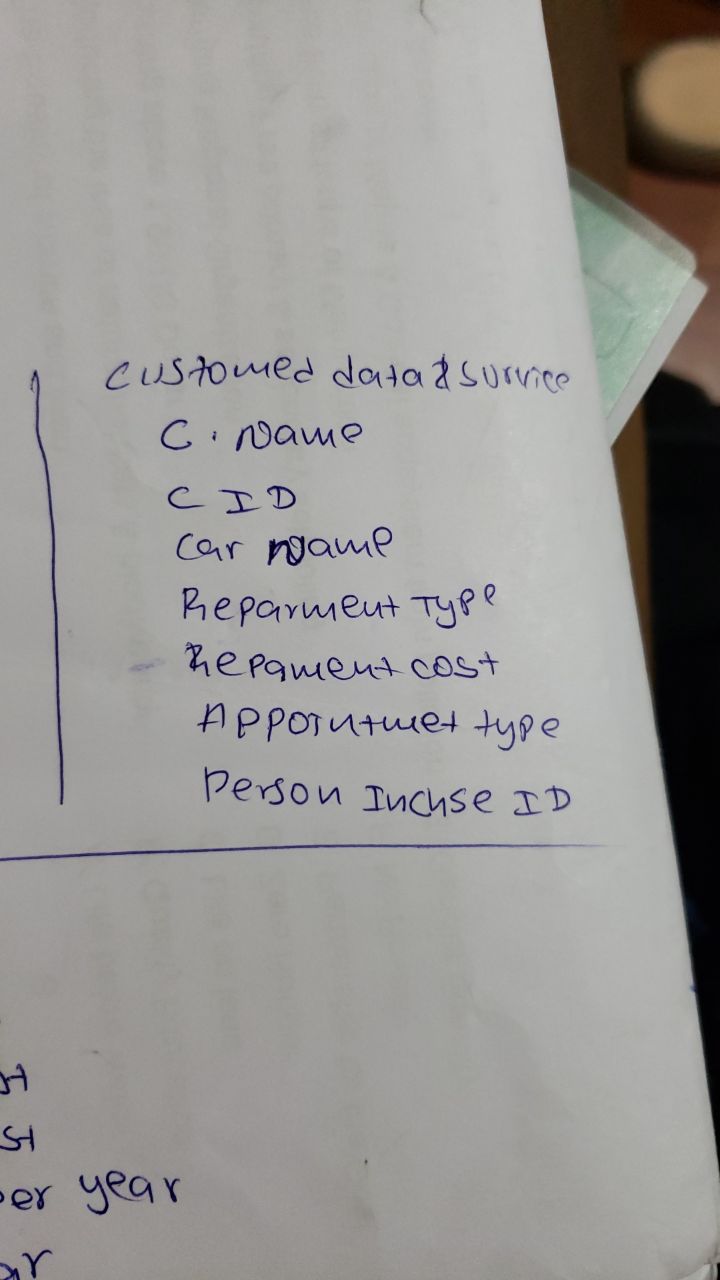 Customed data & survice
C. Name
C ID
Car Name
Reparment Type
Repament cost
Appointmet type
Person Inchse ID
st
per year
ar